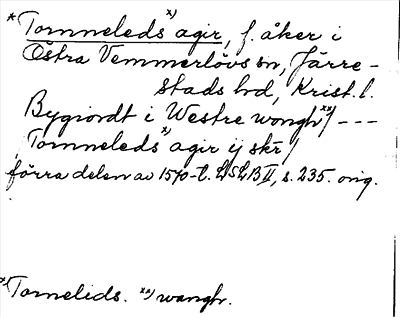 * Tornneleds x) agir, f. åker i
Östra Vemmerlövs sn, Järre-
stads hd, Krist. l.
Bygiordt i Westre wongh xx)/ ---
Tornneleds x) agir ij skr /
förra delen av 1570-t. LSLB II, s. 235. orig.
x) Tornelids. xx) wangh.